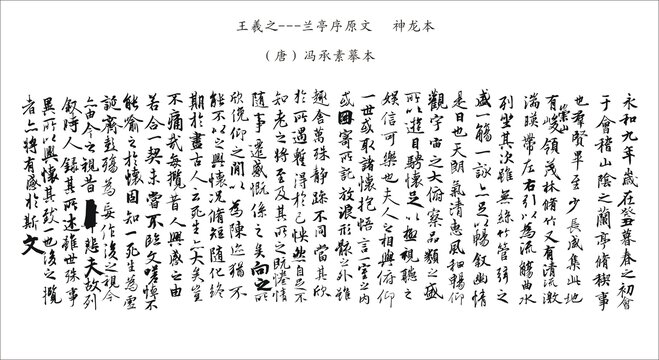 王羲之---兰亭序原文 神龙本
(唐)冯承素摹本
永和九年歲在癸丑暮春之初會
于會稽山陰之蘭亭脩稧事
也羣賢畢至少長咸集此地
有崇山峻領茂林脩竹又有清流激
湍暎帶左右引以為流觴曲水
列坐其次雖無絲竹管弦之
盛一觴一詠亦足以暢敘幽情
是日也天朗氣清惠風和暢仰
觀宇宙之大俯察品類之盛
所以遊目騁懷足以極視聽之
娛信可樂也夫人之相與俯仰
一世或取諸懷抱悟言一室之內
或因寄所託放浪形骸之外雖
趣舍萬殊靜躁不同當其欣
於所遇蹔得於己怏然自足不
知老之將至及其所之既惓情
隨事遷感慨係之矣向之所
欣俛仰之閒以為陳迹猶不
能不以之興懷況脩短隨化終
期於盡古人云死生亦大矣豈
不痛哉每攬昔人興感之由
若合一契未嘗不臨文嗟悼不
能喻之於懷固知一死生為虛
誕齊彭殤為妄作後之視今
亦由今之視昔悲夫故列
敘時人錄其所述雖世殊事
異所以興懷其致一也後之攬
者亦將有感於斯文